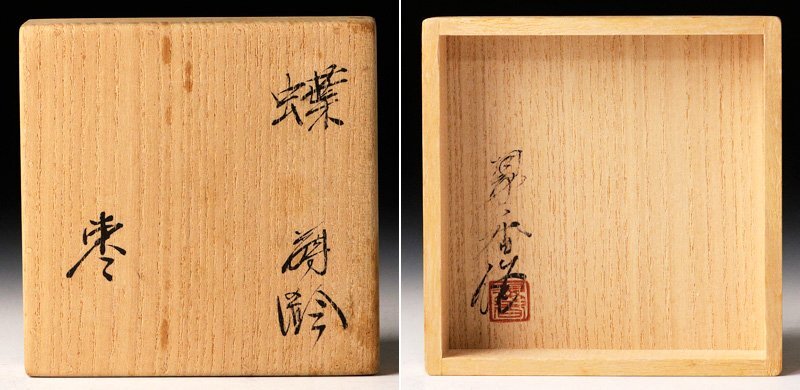 蝶
蒔絵
棗
香作